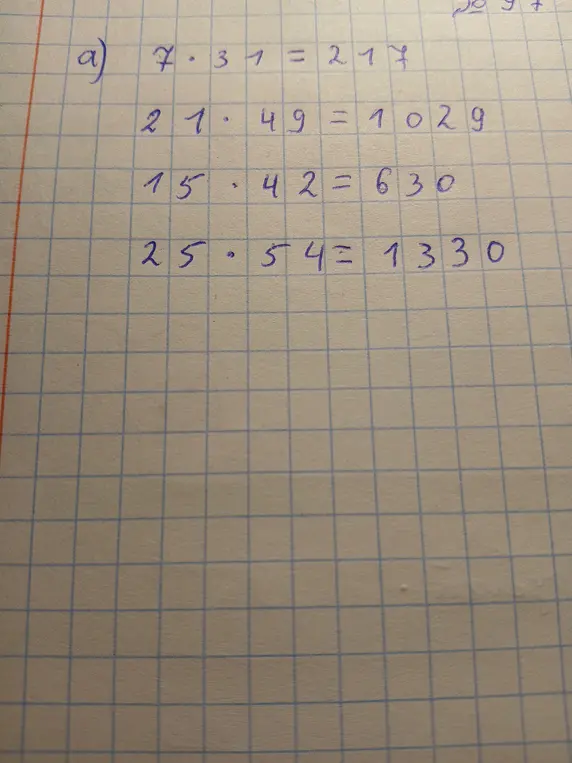 № 97
а) 7 · 31 = 217
21 · 49 = 1029
15 · 42 = 630
25 · 54 = 1330